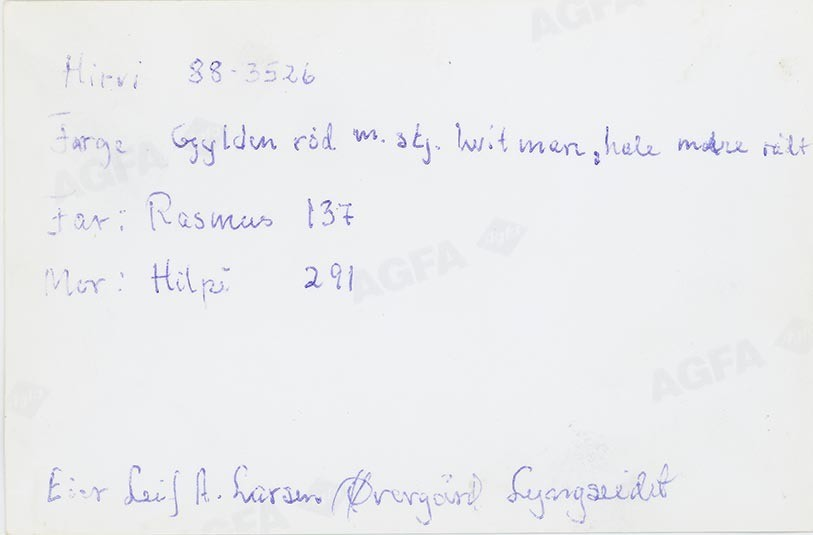 Hirvi 88-3526
Farge. Gylden rød m. stj. hvit man, hale
Far: Rasmus 137
Mor: Hilpi 291
Eier Leif A. Larsen (Øvergård) Lyngseidet
AGFA
AGFA
AGFA
AGFA
AGFA